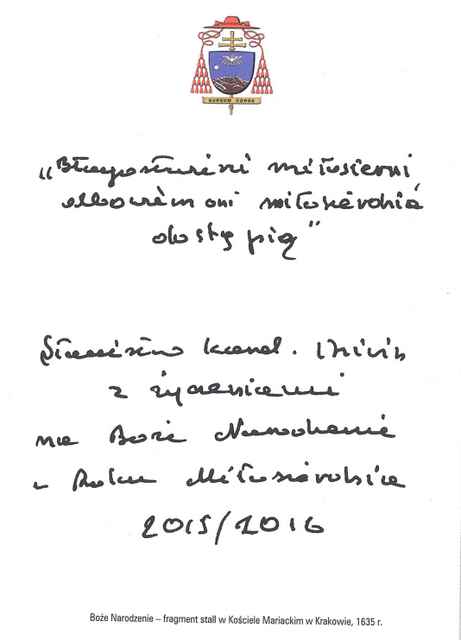 SURSUM CORDA
„Błogosławieni miłosierni
albowiem oni miłosierdzia
dostąpią”
Stanisław kard. Dziwisz
z życzeniami
na Boże Narodzenie
w Roku Miłosierdzia
2015/2016
Boże Narodzenie – fragment stall w Kościele Mariackim w Krakowie, 1635 r.